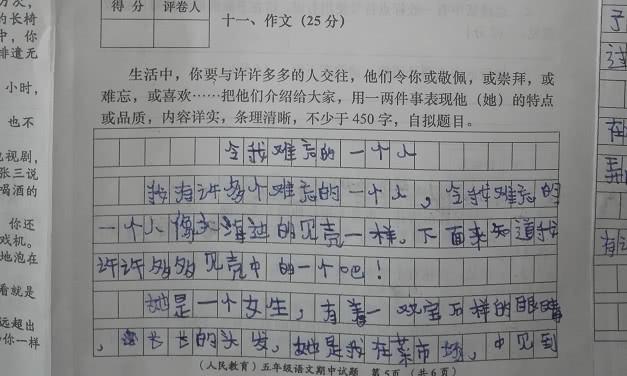 得 分 评卷人
十一、作文(25分)
生活中，你要与许许多多的人交往，他们令你或敬佩，或崇拜，或
难忘，或喜欢……把他们介绍给大家，用一两件事表现他（她）的特点
或品质，内容详实，条理清晰，不少于 450 字，自拟题目。
令我难忘的一个人
我有许多个难忘的一个人，令我难忘的
一个人像海边的贝壳一样。下面来知道我
许许多多贝壳中的一个吧！
她是一个女生，有着一双宝石样的眼睛
，长长的头发，她是我在菜市场，中见到
（人民教育）五年级语文期中试题 第5页（共6页）
的长椅
中，你
排遣无
小时，
也不
电视剧，
张三说
喝酒的
你还
戏机。
地泡在
看就是
远超出
你一样